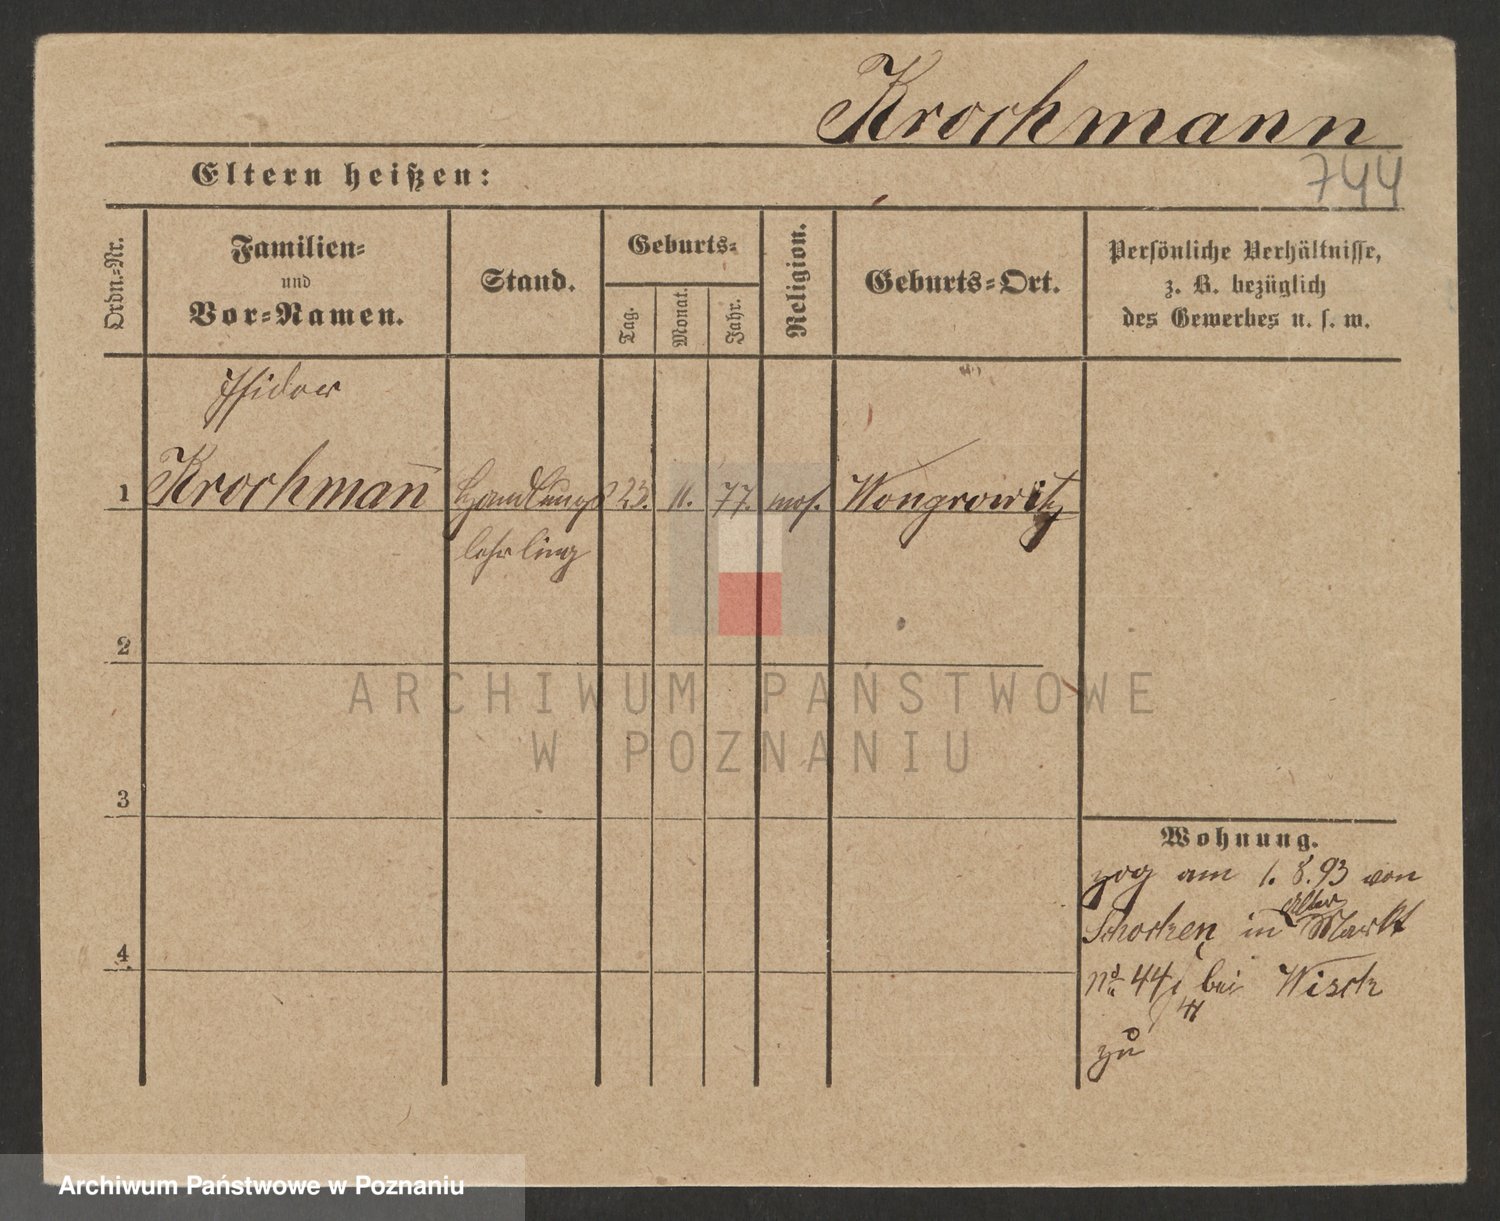 Krochmann
Eltern heißen:
744
Ordn.-Nr.
Familien-
und
Vor-Namen.
Stand.
Geburts-
Tag.
Monat.
Jahr.
Religion.
Geburts-Ort.
Persönliche Verhältnisse,
z. B. bezüglich
des Gewerbes u. s. w.
Isidor
1 Krochman̅ Handlungs 23. 11. 77. mos. Wongrowitz
lehrling
2
3
4
Wohnung.
zog am 1. 8. 93 von
Alter
Schocken in Markt
No 44 bei Wisch
zu
ARCHIWUM PAŃSTWOWE
W POZNANIU
Archiwum Państwowe w Poznaniu